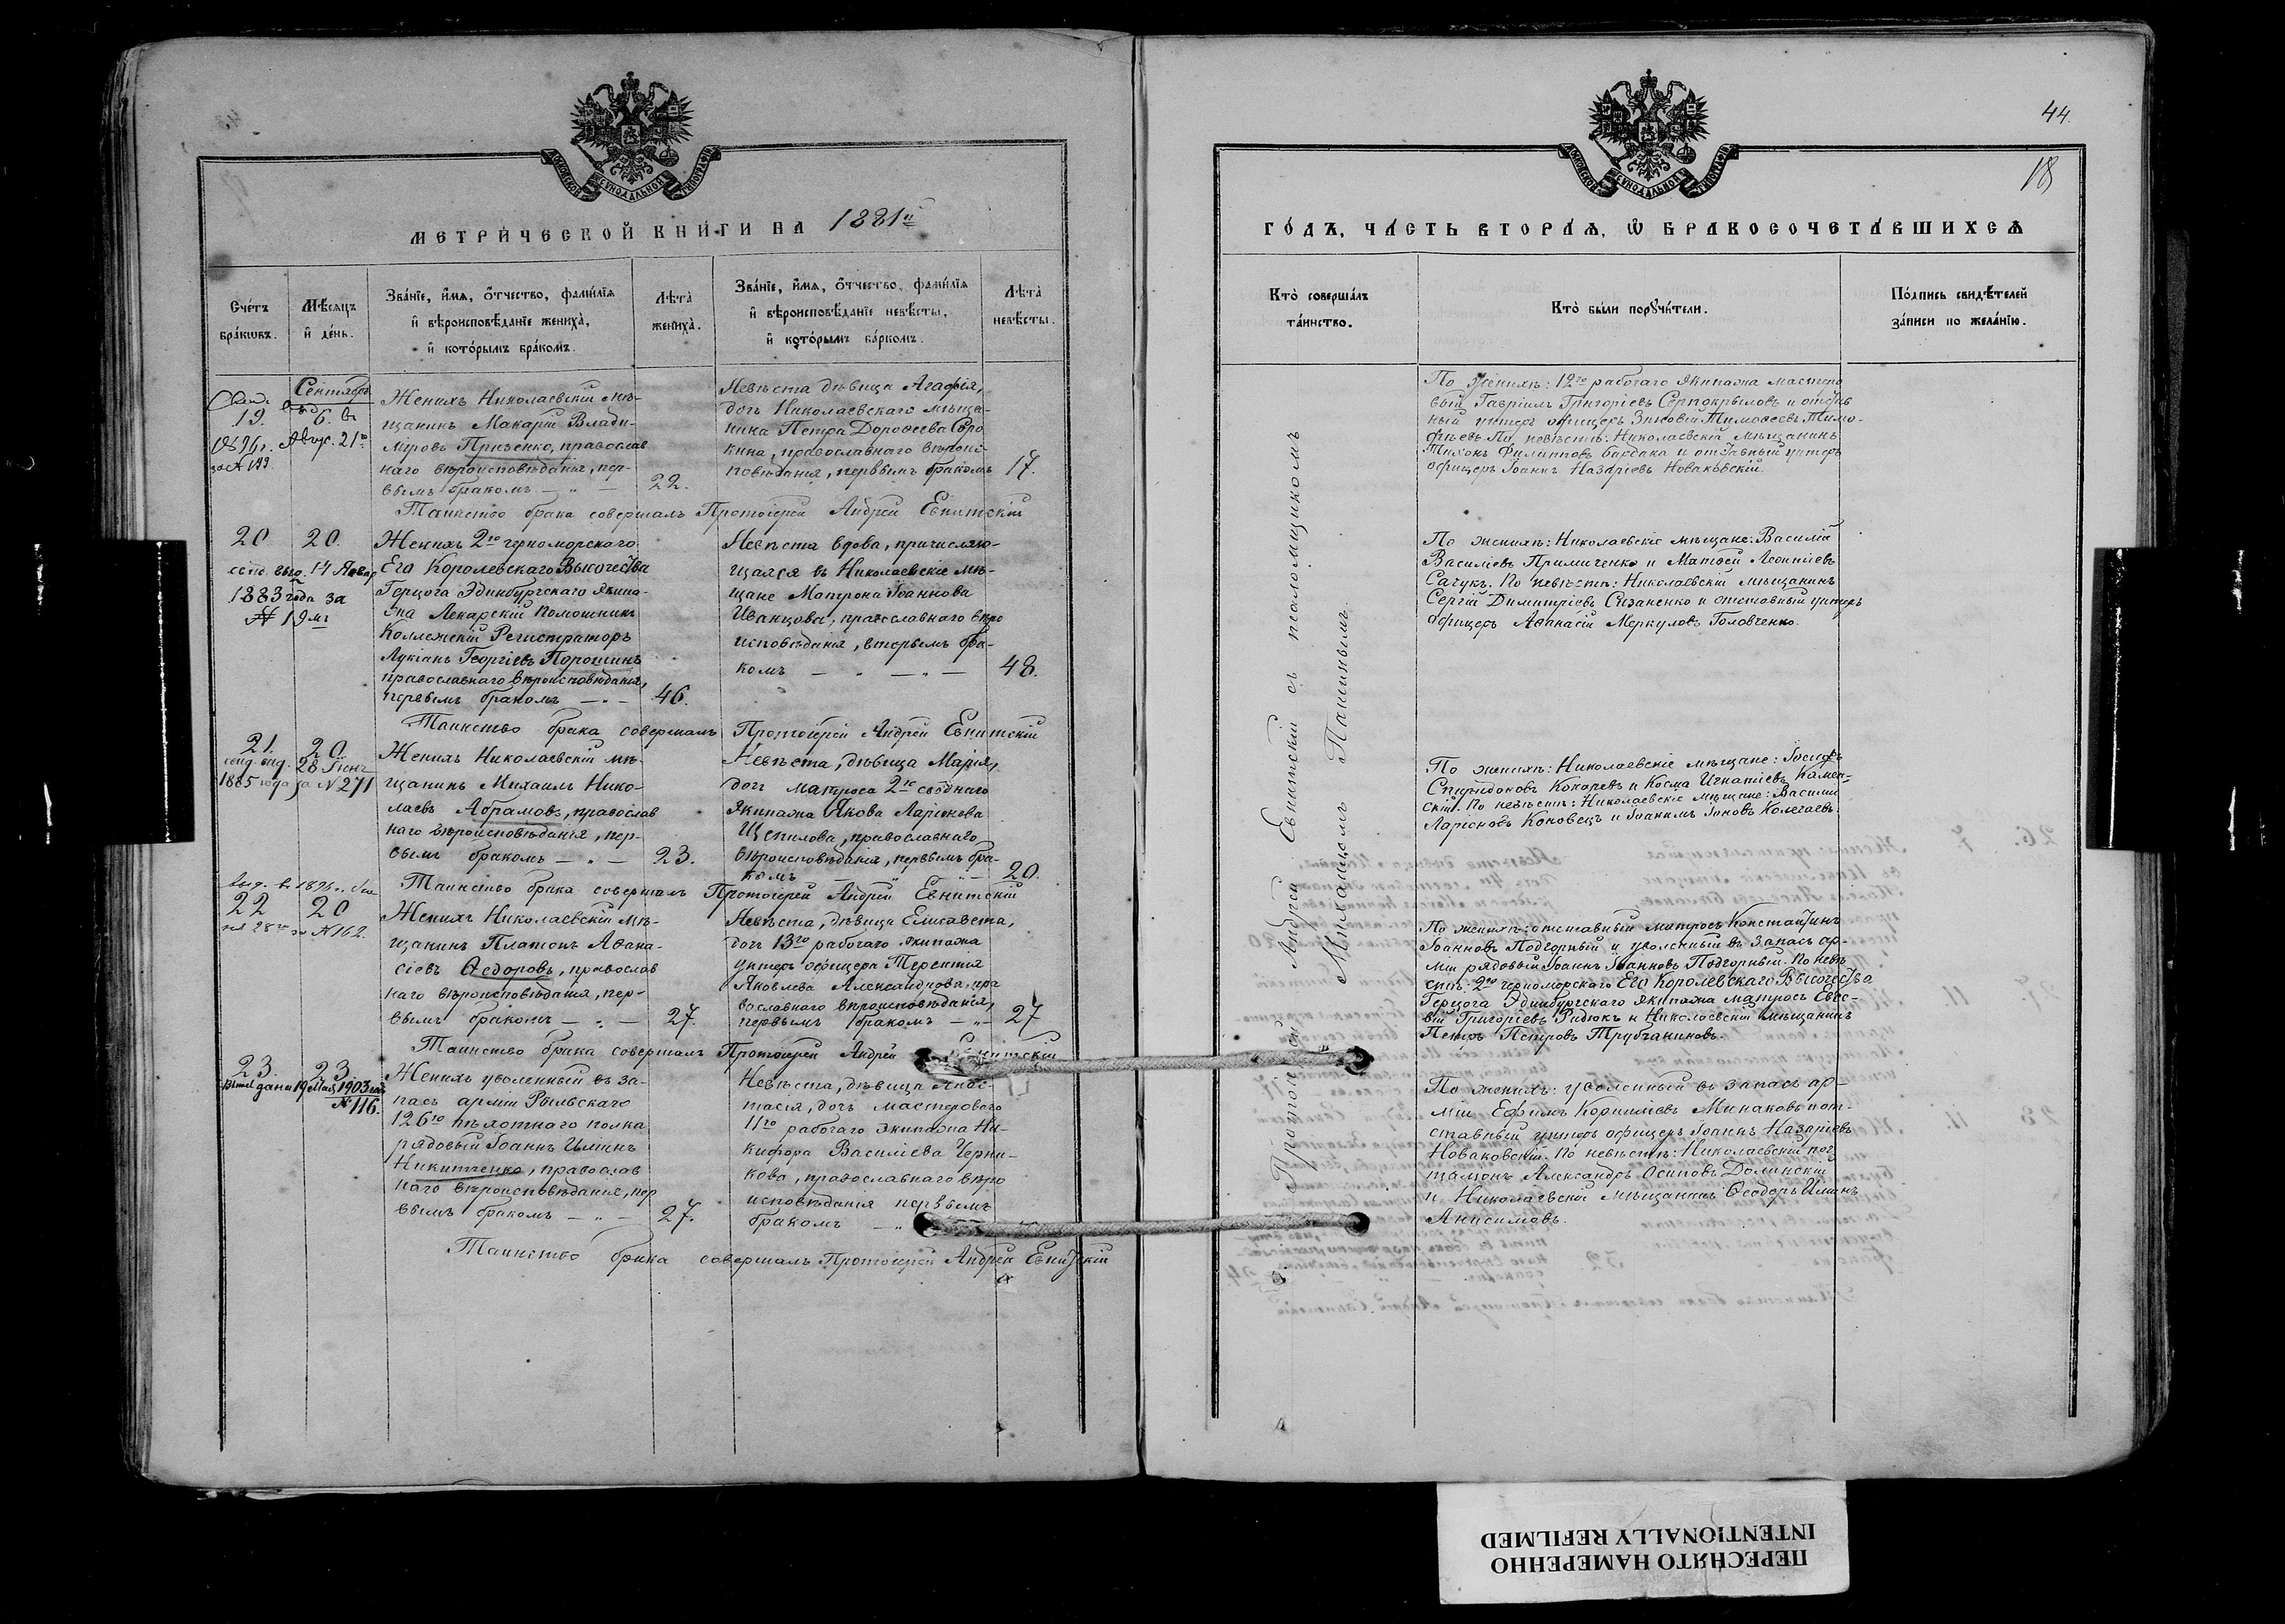 МОСКОВСКОЙ СѴНОДАЛЬНОЙ ТИПОГРАФІИ
МЕТРИ́ЧЕСКОЙ КНИ́ГИ НА 1881й
Сче́тъ бра́кѡвъ.
Мѣ́сяцъ и҆ де́нь.
Зва́нїе, и҆́мѧ, ѻ҆́тчество, фами́лїѧ
и҆ вѣроисповѣ́данїе жениха̀,
и҆ кото́рымъ бра́комъ.
Лѣта̀ жениха̀.
Зва́нїе, и҆́мѧ, ѻ҆́тчество, фами́лїѧ
и҆ вѣроисповѣ́данїе невѣ́сты,
и҆ кото́рымъ ба́ркомъ.
Лѣта̀ невѣ́сты.
Сентябрь
19.
6.
Авгус. 21го
Женихъ Николаевскій мѣ-
щанинъ Макарій Влади-
міровъ Призенко, православ
наго вѣроисповѣданія, пер-
вымъ бракомъ — „ —
22.
Невѣста дѣвица Агафія,
дочь Николаевскаго мѣща-
нина Петра Дороѳеева Соро
кина, православнаго вѣроис-
повѣданія, первымъ бракомъ
17.
Таинство брака совершалъ Протоіерей Андрей Евнитскій
20
20.
выд. 14 Январ
1883 года за
№ 19мъ
Женихъ 2го черноморскаго
Его Королевскаго Высочества
Герцога Эдинбургскаго экипа-
жа Лекарскій Помощникъ
Коллежскій Регистраторъ
Лукіанъ Георгіевъ Порошинъ
православнаго вѣроисповѣданія,
первымъ бракомъ — „ —
46.
Невѣста вдова, причисляю-
щаяся въ Николаевскіе мѣ-
щане Матрона Іоаннова
Иванцова, православнаго вѣро
исповѣданія, вторымъ бра-
комъ — „ — „ —
48.
Таинство брака совершалъ Протоіерей Андрей Евнитскій
21.
20.
28 Іюня
1885 года за № 271
Женихъ Николаевскій мѣ-
щанинъ Михаилъ Нико-
лаевъ Абрамовъ, православ
наго вѣроисповѣданія, пер-
вымъ бракомъ — „ —
23.
Невѣста, дѣвица Марія,
дочь матроса 2го своднаго
Экипажа Якова Ларіонова
Щепилова, православнаго
вѣроисповѣданія, первымъ бра-
комъ
20.
Таинство брака совершалъ Протоіерей Андрей Евнитскій
22
20
№ 162.
Женихъ Николаевскій мѣ-
щанинъ Платонъ Аѳана-
сіевъ Ѳедоровъ, православ
наго вѣроисповѣданія, пер-
вымъ бракомъ — „ —
27.
Невѣста, дѣвица Елисавета,
дочь 13го рабочаго экипажа
унтеръ офицера Терентія
Яковлева Александрова, пра
вославнаго вѣроисповѣданія,
первымъ бракомъ — „ —
27
Таинство брака совершалъ Протоіерей Андрей Евнитскій
23.
23.
дана 19 Мая 1903 года
№ 116.
Женихъ уволенный въ за-
пасъ арміи Рыльскаго
126го пѣхотнаго полка
рядовый Іоаннъ Ильинъ
Никитченко, православ
наго вѣроисповѣданія, пер
вымъ бракомъ — „ —
27.
Невѣста, дѣвица Анас-
тасія, дочь мастероваго
11го рабочаго экипажа Ни-
кифора Василіева Черни-
кова, православнаго вѣро
исповѣданія первымъ
бракомъ — „
Таинство брака совершалъ Протоіерей Андрей Евнитскій
44.
18
МОСКОВСКОЙ СѴНОДАЛЬНОЙ ТИПОГРАФІИ
ГО́ДЪ, ЧА́СТЬ ВТОРА́Ѧ, Ѡ҆ БРАКОСОЧЕТА́ВШИХСѦ
Кто̀ соверша́лъ та́инство.
Кто̀ бы́ли порꙋчи́тели.
По́дпись свидѣ́телей за́писи по жела́нїю.
Протоіерей Андрей Евнитскій съ псаломщикомъ
По женихѣ: 12го рабочаго экипажа мастеро
вый Гавріилъ Григорьевъ Серпокрыловъ и отстав
ный унтеръ офицеръ Зиновій Тимоѳеевъ Тимо-
фѣевъ. По невѣстѣ: Николаевскій мѣщанинъ
Тихонъ Филипповъ Бардакъ и отставный унтеръ
офицеръ Іоаннъ Назаріевъ Новаковскій.
По женихѣ: Николаевскіе мѣщане: Василій
Василіевъ Примиченко и Матѳей Леонтіевъ
Сачукъ. По невѣстѣ: Николаевскій мѣщанинъ
Сергій Димитріевъ Сизаненко и отставный унтеръ
офицеръ Аѳанасій Меркуловъ Головченко.
По женихѣ: Николаевскіе мѣщане: Іосифъ
Спиридоновъ Кокаревъ и Косма Игнатіевъ Камен-
скій. По невѣстѣ: Николаевскіе мѣщане: Василій
Ларіоновъ Коновецъ и Іоакимъ Іоновъ Колегаевъ.
По женихѣ: отставный матросъ Константинъ
Іоанновъ Подгорный и уволенный въ запасъ ар-
міи рядовый Іоаннъ Іоанновъ Подгорный. По невѣ
стѣ: 2го черноморскаго Его Королевскаго Высочества
Герцога Эдинбургскаго экипажа матросъ Евсе-
вій Григоріевъ Ридюкъ и Николаевскій мѣщанинъ
Петръ Петровъ Трубчаниновъ.
По женихѣ: уволенный въ запасъ ар-
міи Ефимъ Корниліевъ Минаковъ и от-
ставный унтеръ офицеръ Іоаннъ Назаріевъ
Новаковскій. По невѣстѣ: Николаевскій поч
таліонъ Александръ Осиповъ Долинскій
и Николаевскій мѣщанинъ Ѳеодоръ Ильинъ
Анисимовъ.
ПЕРЕСНЯТО НАМЕРЕННО
INTENTIONALLY REFILMED